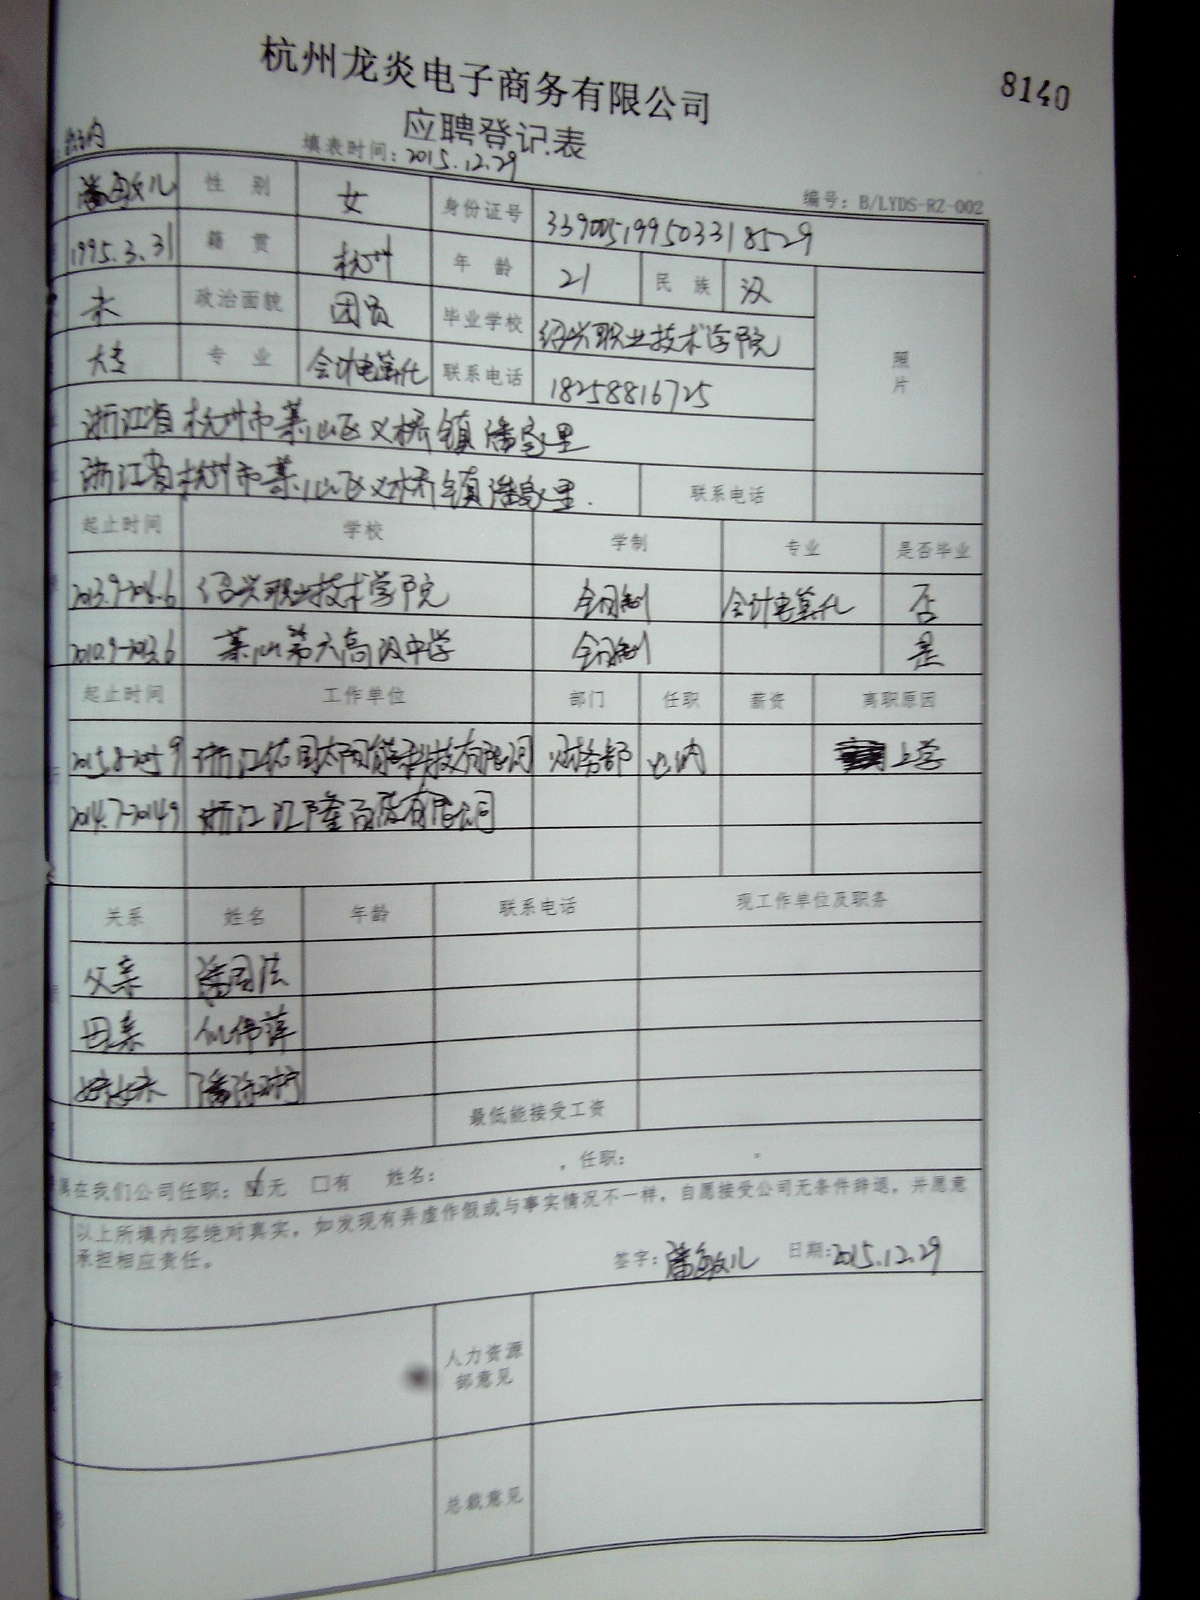 8140
杭州龙炎电子商务有限公司
应聘登记表
出纳 填表时间：2015.12.29
编号：B/LYDS-RZ-002
潘敏儿 性别 女 身份证号 339005199503318529
1995.3.31 籍贯 杭州 年龄 21 民族 汉
未 政治面貌 团员 毕业学校 绍兴职业技术学院 照片
大专 专业 会计电算化 联系电话 18258816725
浙江省杭州市萧山区义桥镇潘家里
浙江省杭州市萧山区义桥镇潘家里. 联系电话
起止时间 学校 学制 专业 是否毕业
2013.9-2016.6 绍兴职业技术学院 全日制 会计电算化 否
2010.9-2013.6 萧山第六高级中学 全日制 是
起止时间 工作单位 部门 任职 薪资 离职原因
2015.8-2015.9 浙江佑国太阳能科技有限公司 财务部 出纳 上学
2014.7-2014.9 浙江汇隆百货有限公司
关系 姓名 年龄 联系电话 现工作单位及职务
父亲 潘国法
母亲 倪伟萍
妹妹
最低能接受工资
属在我们公司任职：☑无 □有 姓名： ，任职： 。
以上所填内容绝对真实，如发现有弄虚作假或与事实情况不一样，自愿接受公司无条件辞退，并愿意
承担相应责任。
签字：潘敏儿 日期：2015.12.29
人力资源
部意见
总裁意见